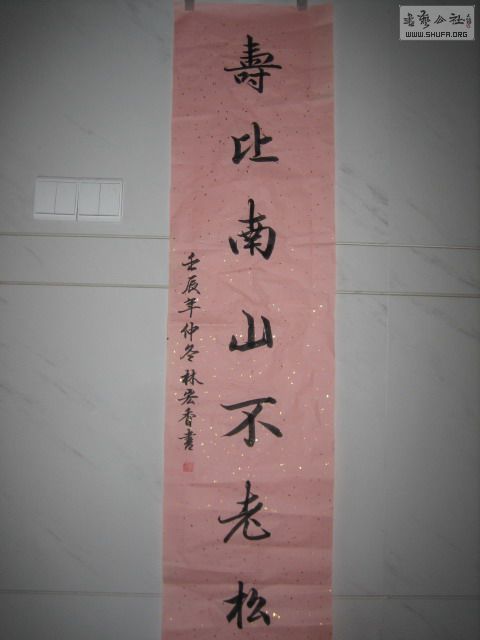 壽比南山不老松
壬辰年仲冬林宏香書
書藝公社
WWW.SHUFA.ORG